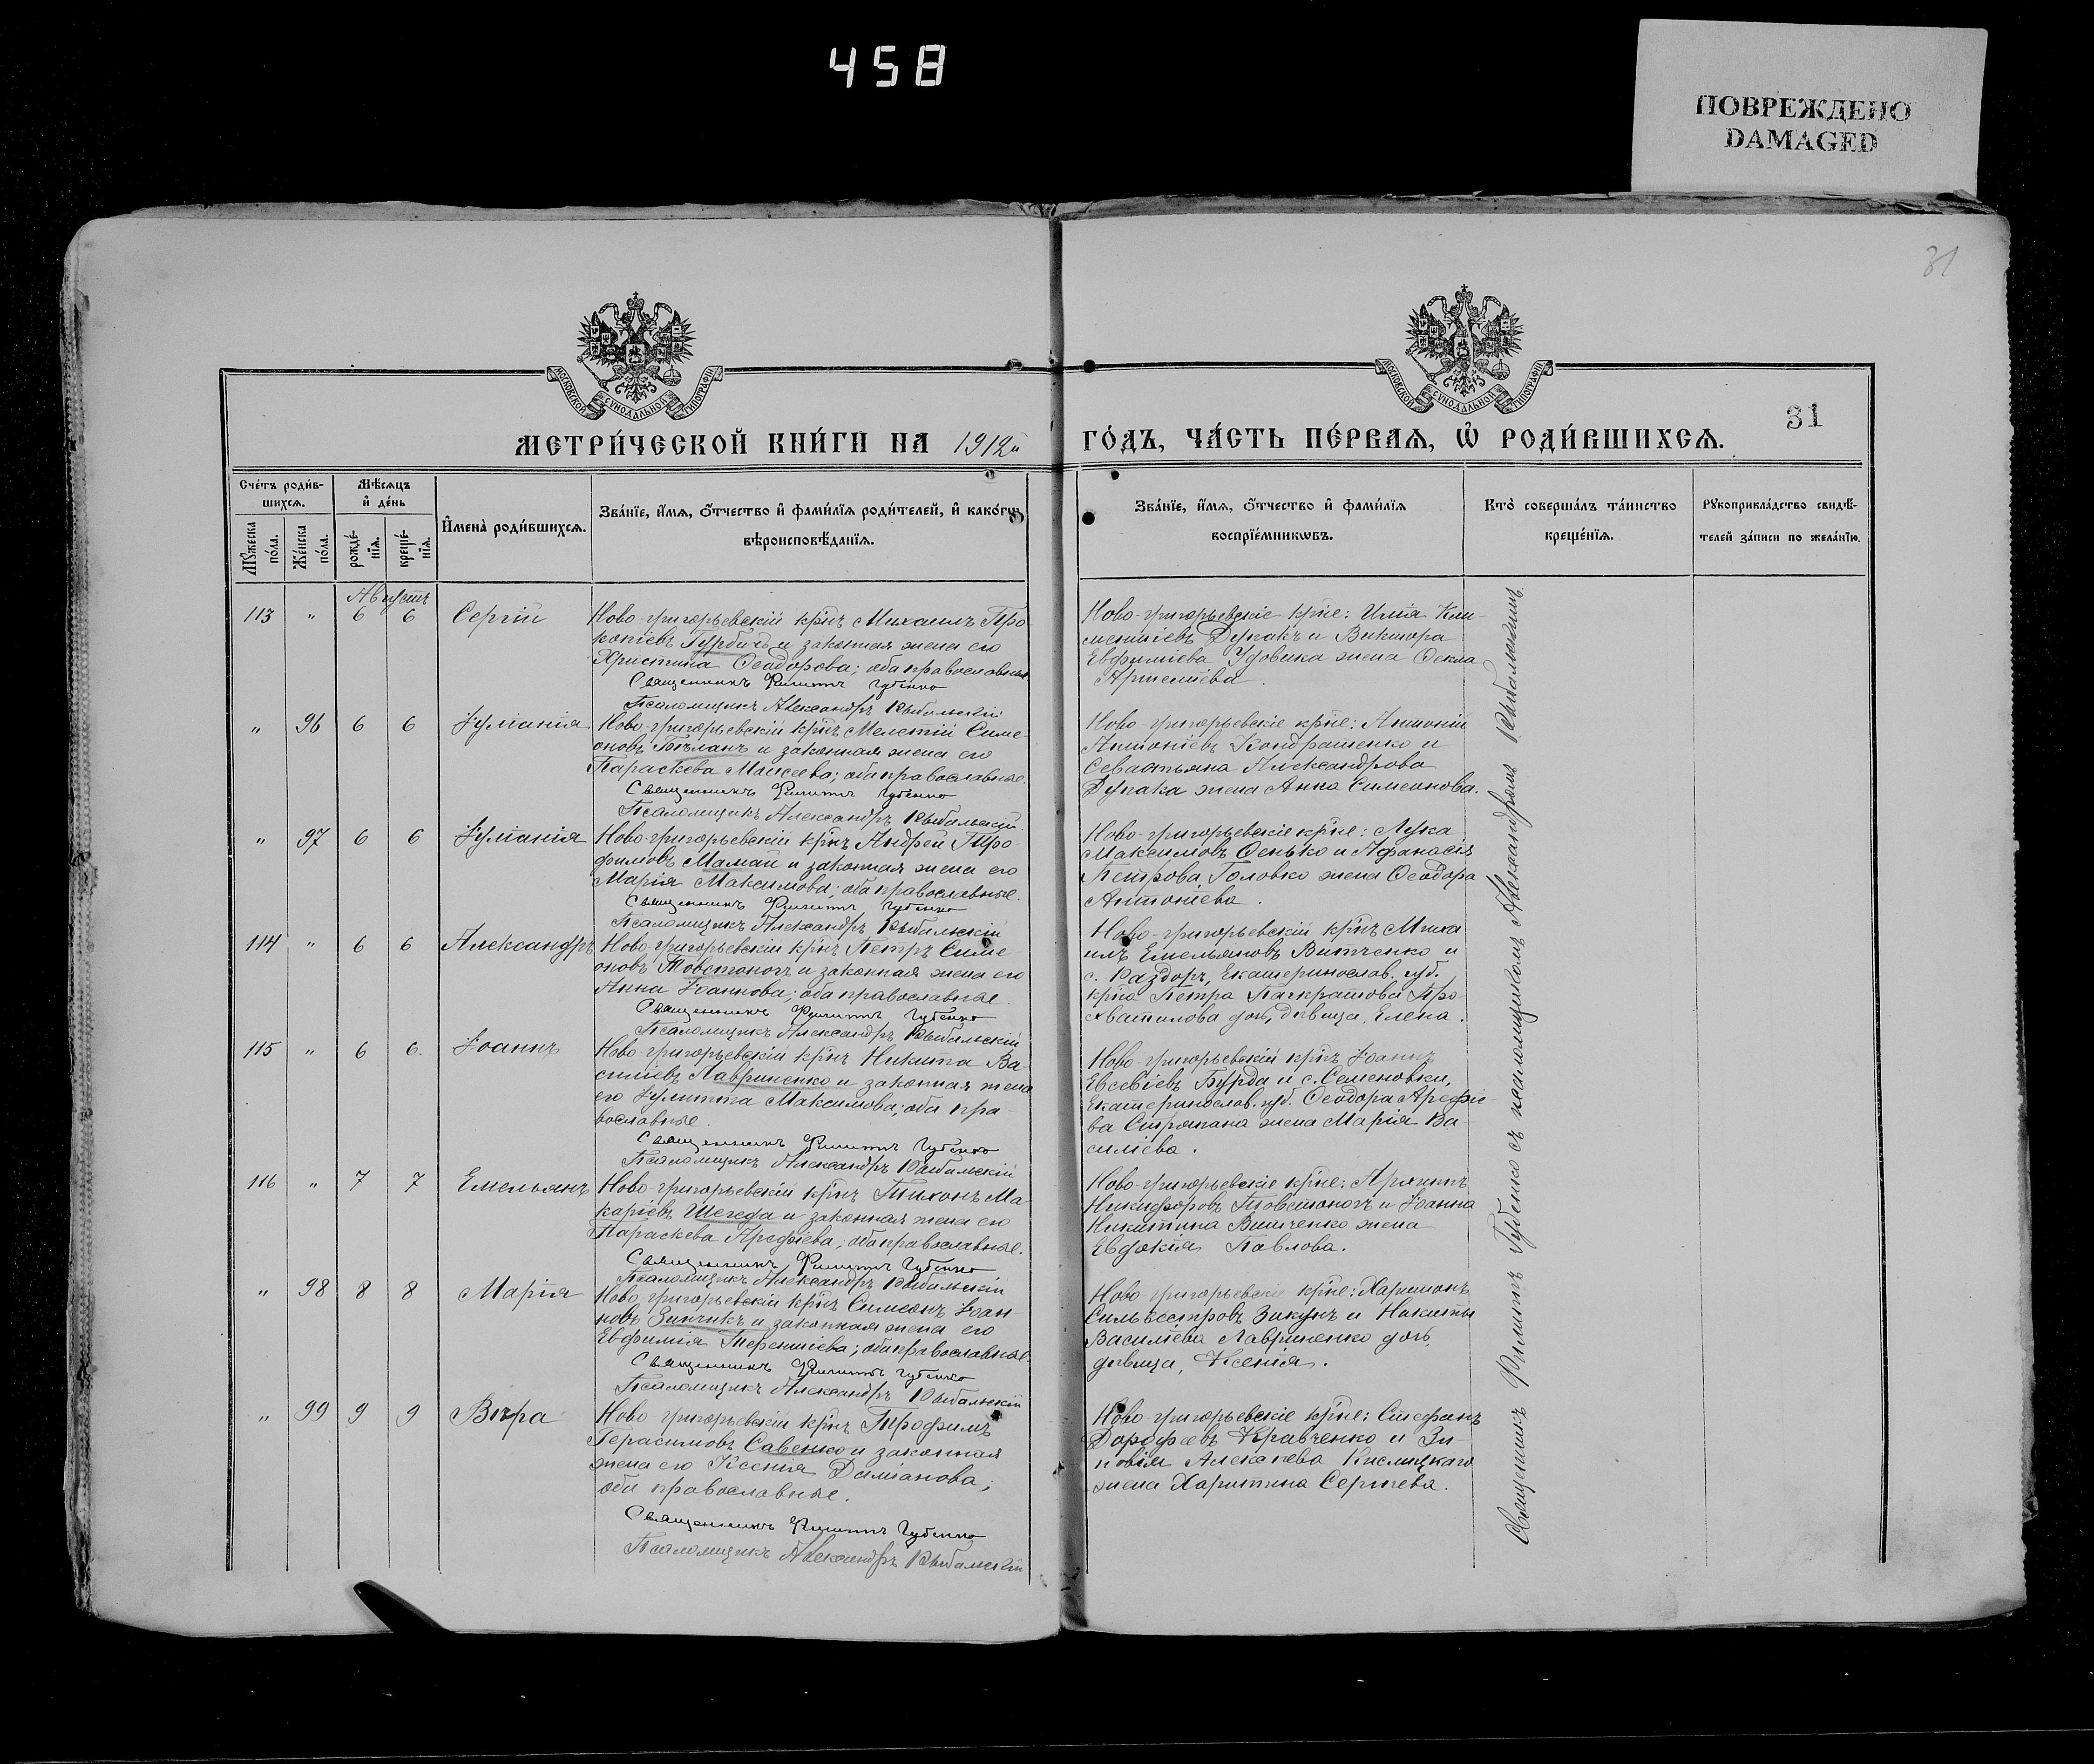 458
ПОВРЕЖДЕНО
DAMAGED
31
МОСКОВСКОЙ СѴНОДАЛЬНОЙ ТИПОГРАФІИ
МОСКОВСКОЙ СѴНОДАЛЬНОЙ ТИПОГРАФІИ
МЕТРИ́ЧЕСКОЙ КНИ́ГИ НА 1912й ГО́ДЪ, ЧА́СТЬ ПЕ́РВАЯ, Ѡ РОДИ́ВШИХСЯ.
31
Сче́тъ роди́вшихся.
Мѣ́сяцъ и де́нь
Мꙋ́жеска по́ла.
Же́нска по́ла.
рожде́нія.
креще́нія.
Имена̀ роди́вшихся.
Зва́ніе, и́мя, о́тчество и фами́лія роди́телей, и како́гѡ
вѣроисповѣ́данія.
Зва́ніе, и́мя, о́тчество и фами́лія
воспріе́мникѡвъ.
Кто̀ соверша́лъ та́инство
креще́нія.
Рꙋкоприкла́дство свидѣ́-
телей за́писи по жела́нію.
Августъ
113 " 6 6 Сергій
Ново-григорьевскій кр̃нъ Михаилъ Про
копіевъ Гурбичъ и законная жена его
Христина Ѳеодорова; оба православные
Священникъ Филиппъ Губенко
Псаломщикъ Александръ Рыбальскій
Ново-григорьевскіе кр̃не: Илія Кли-
ментіевъ Дупакъ и Виктора
Евфиміева Удовика жена Ѳекла
Артеміева.
" 96 6 6 Іуліанія
Ново-григорьевскій кр̃нъ Мелетій Симе-
оновъ Гогланъ и законная жена его
Параскева Моисеева; оба православные.
Священникъ Филиппъ Губенко
Псаломщикъ Александръ Рыбальскій.
Ново-григорьевскіе кр̃не: Антоній
Антоніевъ Кондратенко и
Севастьяна Александрова
Дупака жена Анна Симеонова.
" 97 6 6 Іуліанія
Ново-григорьевскій кр̃нъ Андрей Тро-
фимовъ Мамай и законная жена его
Марія Максимова; оба православные.
Священникъ Филиппъ Губенко
Псаломщикъ Александръ Рыбальскій
Ново-григорьевскіе кр̃не: Лука
Максимовъ Ѳенько и Аѳанасія
Петрова Головко жена Ѳеодора
Антоніева.
114 " 6 6 Александръ
Ново-григорьевскій кр̃нъ Петръ Симе
оновъ Товстоногъ и законная жена его
Анна Іоаннова; оба православные.
Священникъ Филиппъ Губенко
Псаломщикъ Александръ Рыбальскій
Ново-григорьевскій кр̃нъ Миха
илъ Емельяновъ Витченко и
с. Раздоръ, Екатеринослав. губ.
кр̃на Петра Панкратова Про-
хватилова дочь, дѣвица, Елена.
115 " 6 6. Іоаннъ
Ново-григорьевскій кр̃нъ Никита Ва-
силіевъ Лавриненко и законная жена
его Іулитта Максимова; оба пра-
вославные.
Священникъ Филиппъ Губенко
Псаломщикъ Александръ Рыбальскій
Ново-григорьевскій кр̃нъ Іоаннъ
Евсевіевъ Бурда и с. Семеновки,
Екатеринослав. губ. Ѳеодора Арефіе-
ва Стрюкана жена Марія Ва-
силіева.
116 " 7 7 Емельянъ
Ново-григорьевскій кр̃нъ Тихонъ Ма-
каріевъ Шегеда и законная жена его
Параскева Арефіева; оба православные.
Священникъ Филиппъ Губенко
Псаломщикъ Александръ Рыбальскій
Ново-григорьевскіе кр̃не: Архиппъ
Никифоровъ Товстоногъ и Іоанна
Никитина Витченко жена
Евдокія Павлова.
" 98 8 8 Марія
Ново григорьевскій кр̃нъ Симеонъ Іоан-
новъ Зинчикъ и законная жена его
Евфимія Терентіева; оба православные.
Священникъ Филиппъ Губенко
Псаломщикъ Александръ Рыбальскій
Ново григорьевскіе кр̃не: Харитонъ
Сильвестровъ Зикунъ и Никиты
Василіева Лавриненко дочь,
дѣвица, Ксенія.
" 99 9 9 Вѣра
Ново григорьевскій кр̃нъ Трофимъ
Герасимовъ Савенко и законная
жена его Ксенія Даміанова;
оба православные.
Священникъ Филиппъ Губенко
Псаломщикъ Александръ Рыбальскій
Ново григорьевскіе кр̃не: Стефанъ
Дорофеевъ Кравченко и Зи-
новія Алексіева Кислицкаго
жена Харитина Сергіева.
Священникъ Филиппъ Губенко съ псаломщикомъ Александромъ Рыбальскимъ.